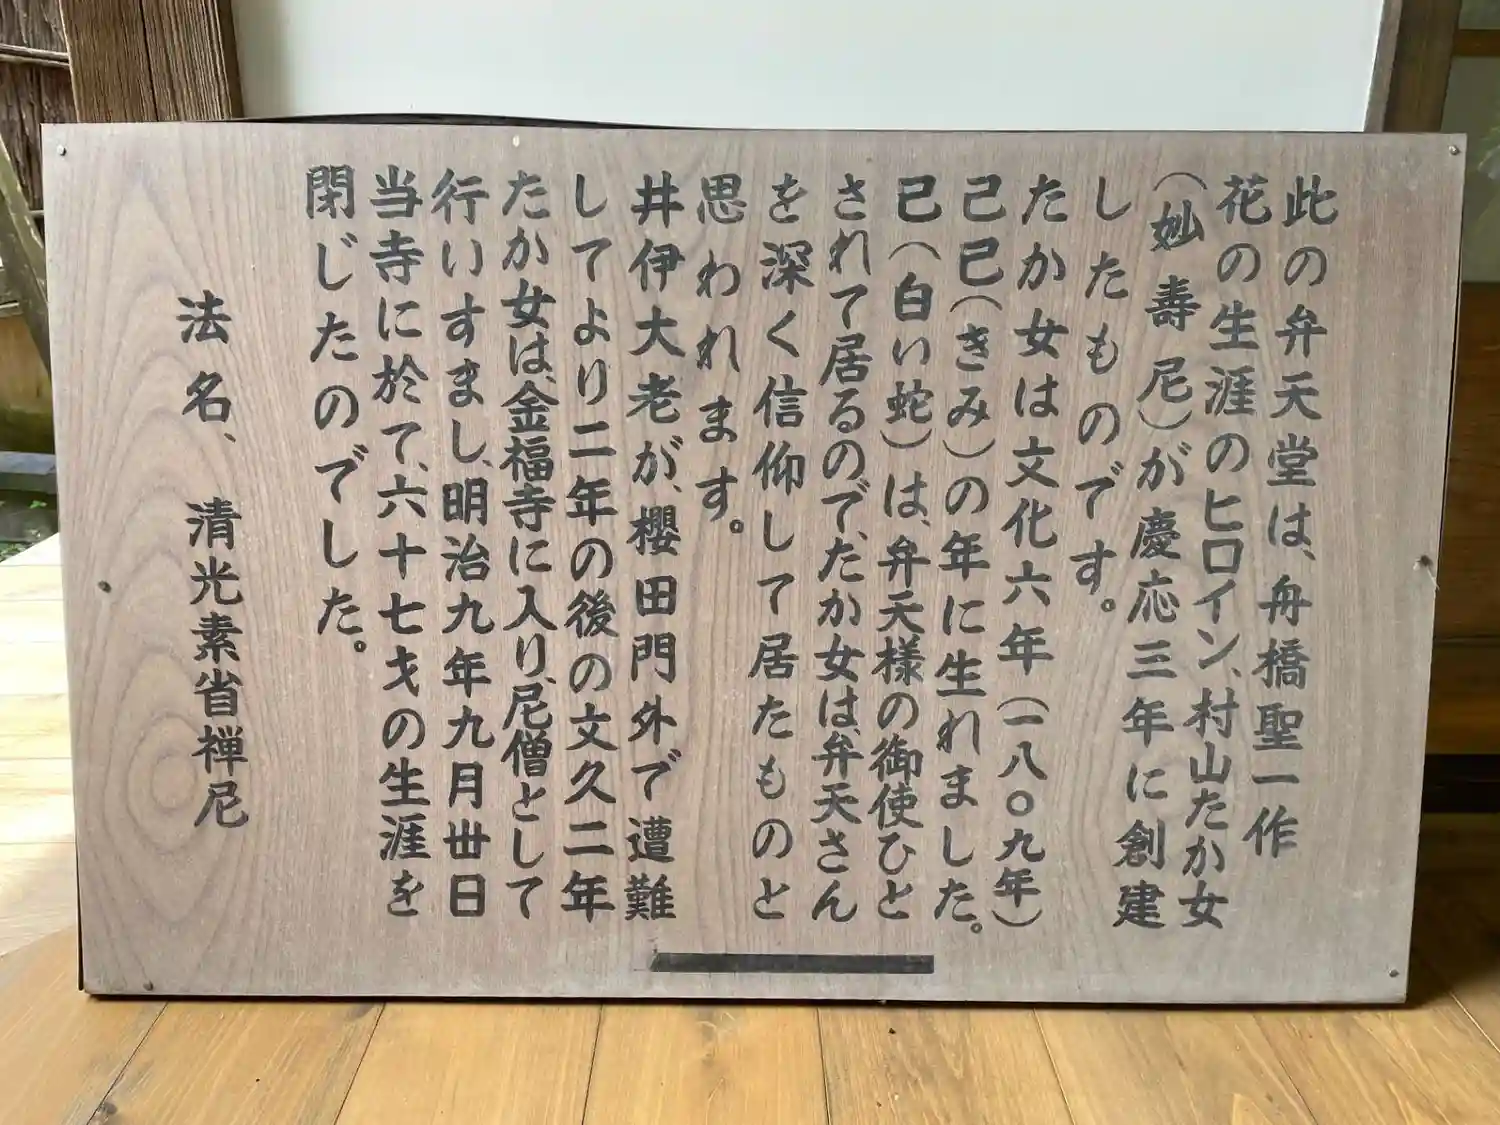 此の弁天堂は、舟橋聖一作
花の生涯のヒロイン、村山たか女
（妙壽尼）が慶応三年に創建
したものです。
たか女は文化六年（一八〇九年）
己巳（きみ）の年に生れました。
巳（白い蛇）は、弁天様の御使ひと
されて居るので、たか女は、弁天さん
を深く信仰して居たものと
思われます。
井伊大老が、櫻田門外で遭難
してより二年の後の文久二年
たか女は、金福寺に入り、尼僧として
行いすまし、明治九年九月丗日
当寺に於て、六十七才の生涯を
閉じたのでした。
法名、清光素省禅尼